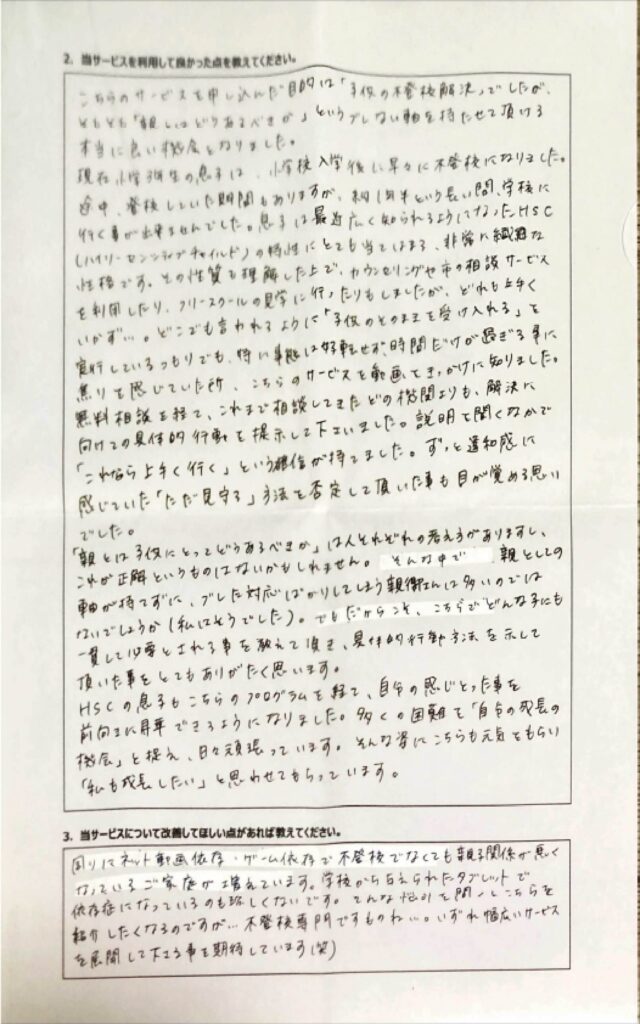 2. 当サービスを利用して良かった点を教えてください。
こちらのサービスを申し込んだ目的は「子供の不登校解決」でしたが、
そもそも「親とはどうあるべきか」というブレない軸を持たせて頂ける
本当に良い機会となりました。
現在小学3年生の息子は、小学校入学後に早々に不登校になりました。
途中、登校していた期間もありますが、約1年半という長い間、学校に
行く事が出来ませんでした。息子は最近広く知られるようになったHSC
(ハイリー・センシティブチャイルド)の特性にとても当てはまる、非常に繊細な
性格です。その性質を理解した上で、カウンセリングや市の相談サービス
を利用したり、フリースクールの見学に行ったりもしましたが、どれも上手く
いかず…。どこでも言われるように「子供のそのままを受け入れる」を
実行しているつもりでも、特に事態は好転せず、時間だけが過ぎる事に
焦りを感じていた所、こちらのサービスを動画できっかけに知りました。
無料相談を経て、これまで相談してきたどの機関よりも、解決に
向けての具体的行動を提示して下さいました。説明を聞くなかで
「これなら上手く行く」という確信が持てました。ずっと違和感に
感じていた「ただ見守る」方法を否定して頂いた事も目が覚める思い
でした。
「親とは子供にとってどうあるべきか」は人それぞれの考え方がありますし、
これが正解というものはないかもしれません。そんな中で 親としての
軸が持てずに、ブレた対応ばかりしてしまう親御さんは多いのでは
ないでしょうか(私はそうでした)。でもだからこそ、こちらでどんな子にも
一貫して必要とされる事を教えて頂き、具体的行動方法を示して
頂いた事をとてもありがたく思います。
HSCの息子もこちらのプログラムを経て、自分の感じとった事を
前向きに昇華できるようになりました。多くの困難を「自分の成長の
機会」と捉え、日々頑張っています。そんな姿にこちらも元気をもらい
「私も成長したい」と思わせてもらっています。
3. 当サービスについて改善してほしい点があれば教えてください。
周りにネット動画依存・ゲーム依存で不登校でなくても親子関係が悪く
なっているご家庭が増えています。学校から与えられたタブレットで
依存症になっているのも珍しくないです。そんな悩みを聞くとこちらを
紹介したくなるのですが…不登校専門ですものね…。いずれ幅広いサービス
を展開して下さる事を期待しています(笑)